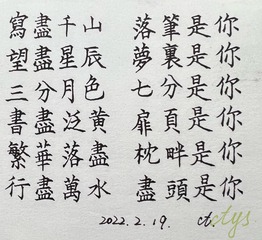 寫盡千山 落筆是你
望盡星辰 夢裏是你
三分月色 七分是你
書盡泛黃 扉頁是你
繁華落盡 枕畔是你
行盡萬水 盡頭是你
2022.2.19. ct.